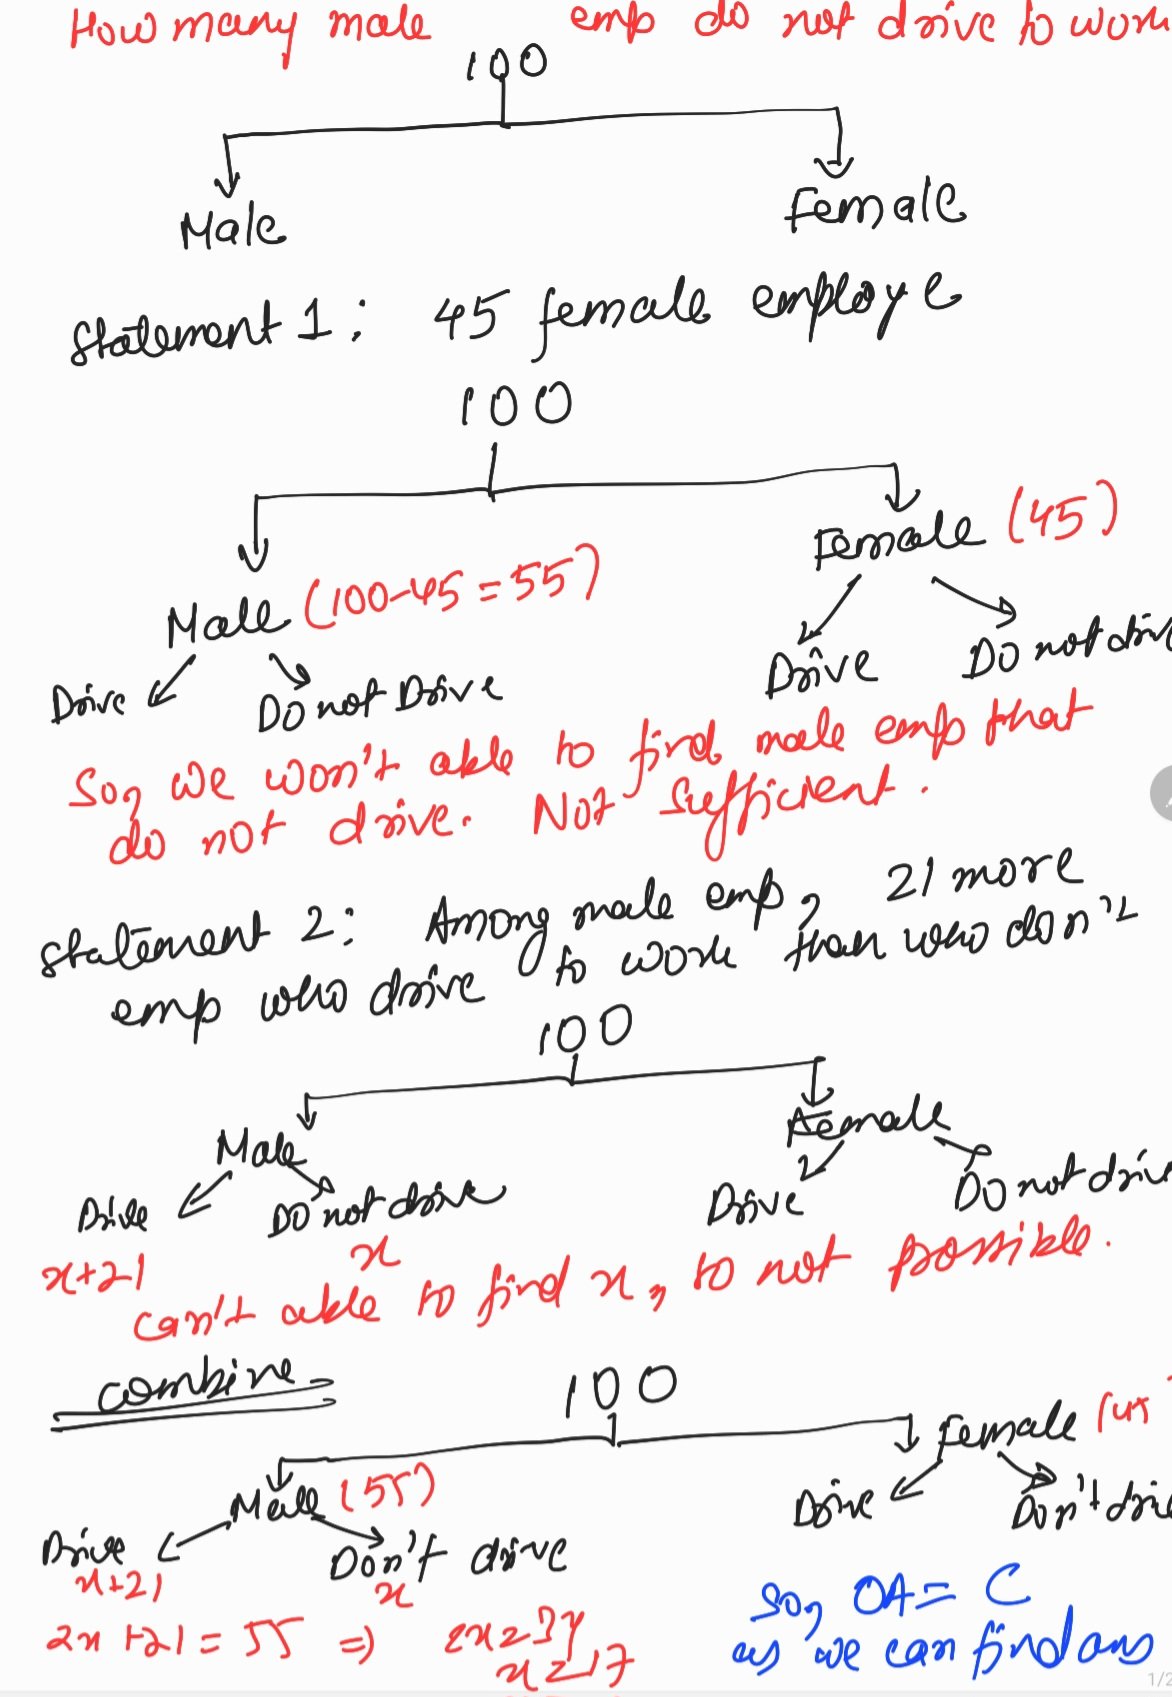 How many male emp do not drive to work
100
Male Female
Statement 1: 45 female employe
100
Male (100-45=55) Female (45)
Drive Do not Drive Drive Do not driv
So, we won't able to find male emp that
do not drive. Not Sufficient.
Statement 2: Among male emp, 21 more
emp who drive to work than who don't
100
Male Female
Drive Do not drive Drive Do not driv
x+21 x
can't able to find x, to not possible.
combine
100
Male (55) Female
Drive Don't drive Drive Don't driv
x+21 x
2x+21=55 => 2x=34
x=17
So, OA= C
as we can find ans
1/2